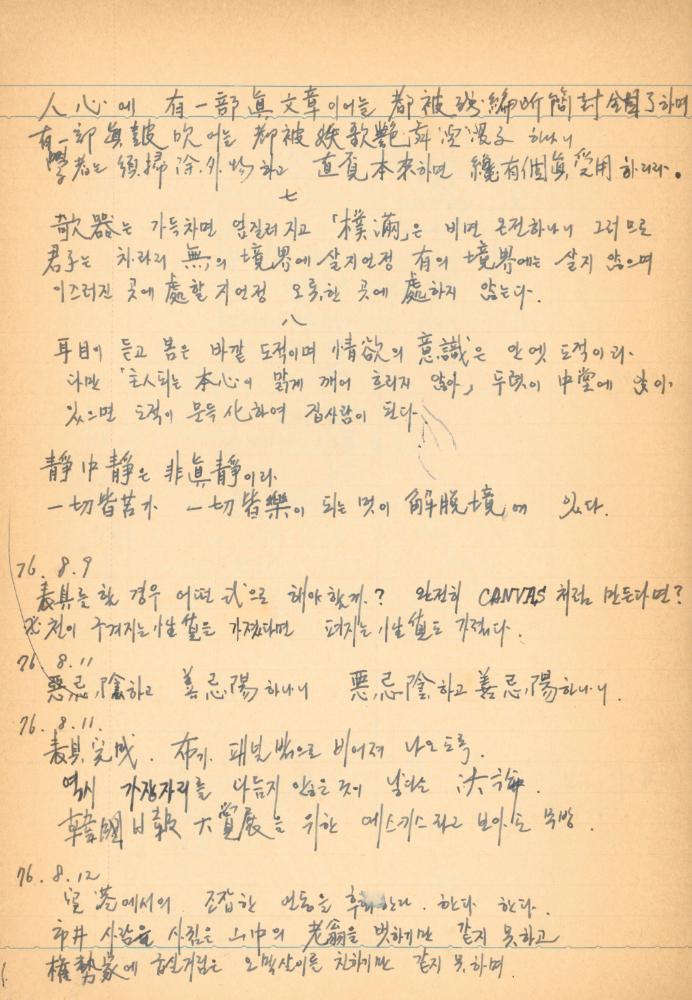 人心에 有一部眞文章이어늘 都被殘編斷簡封錮了하며
有一部眞鼓吹어늘 都被妖歌艶舞湮沒了하나니
學者는 須掃除外物하고 直覓本來하면 纔有個眞受用하리라.
七
欹器는 가득차면 엎질러지고 「樸滿」은 비면 온전하나니 그러므로
君子는 차라리 無의 境界에 살지언정 有의 境界에는 살지 않으며
이즈러진 곳에 處할지언정 오롯한 곳에 處하지 않는다.
八
耳目이 듣고 봄은 바깥 도적이며 情欲의 意識은 안엣 도적이라.
다만 「主人되는 本心이 맑게 깨어 흐리지 않아」 뚜렷이 中堂에 앉아
있으면 도적이 문득 化하여 집사람이 된다.
靜中靜은 非眞靜이라.
一切皆苦가 一切皆樂이 되는 멋이 解脫境에 있다.
76. 8. 9
表具를 할 경우 어떤 式으로 해야 할까? 완전히 CANVAS 처럼 만든다면?
천이 구겨지는 性質을 가졌다면 펴지는 性質도 가졌다.
76. 8. 11
惡忌陰하고 善忌陽하나니 惡忌陰하고 善忌陽하나니.
76. 8. 11.
表具完成. 布가 패널 밖으로 비어져 나오도록.
역시 가장자리를 다듬지 않은 것이 낳다는 決論.
韓國日報 大賞展을 위한 에스키스라고 보아도 무방.
76. 8. 12
에서의 조잡한 언동을 후회한다. 한다 한다.
市井 사람을 사귐은 山中의 老翁을 벗하기만 같지 못하고
權勢家에 굽실거림은 오막살이를 친하기만 같지 못하며.